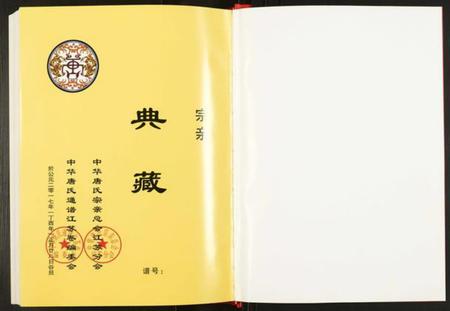 宗亲
典藏
中华唐氏宗亲总会江苏分会
中华唐氏通谱江苏卷编委会
於公元二零一七年(丁酉年)
谱号：